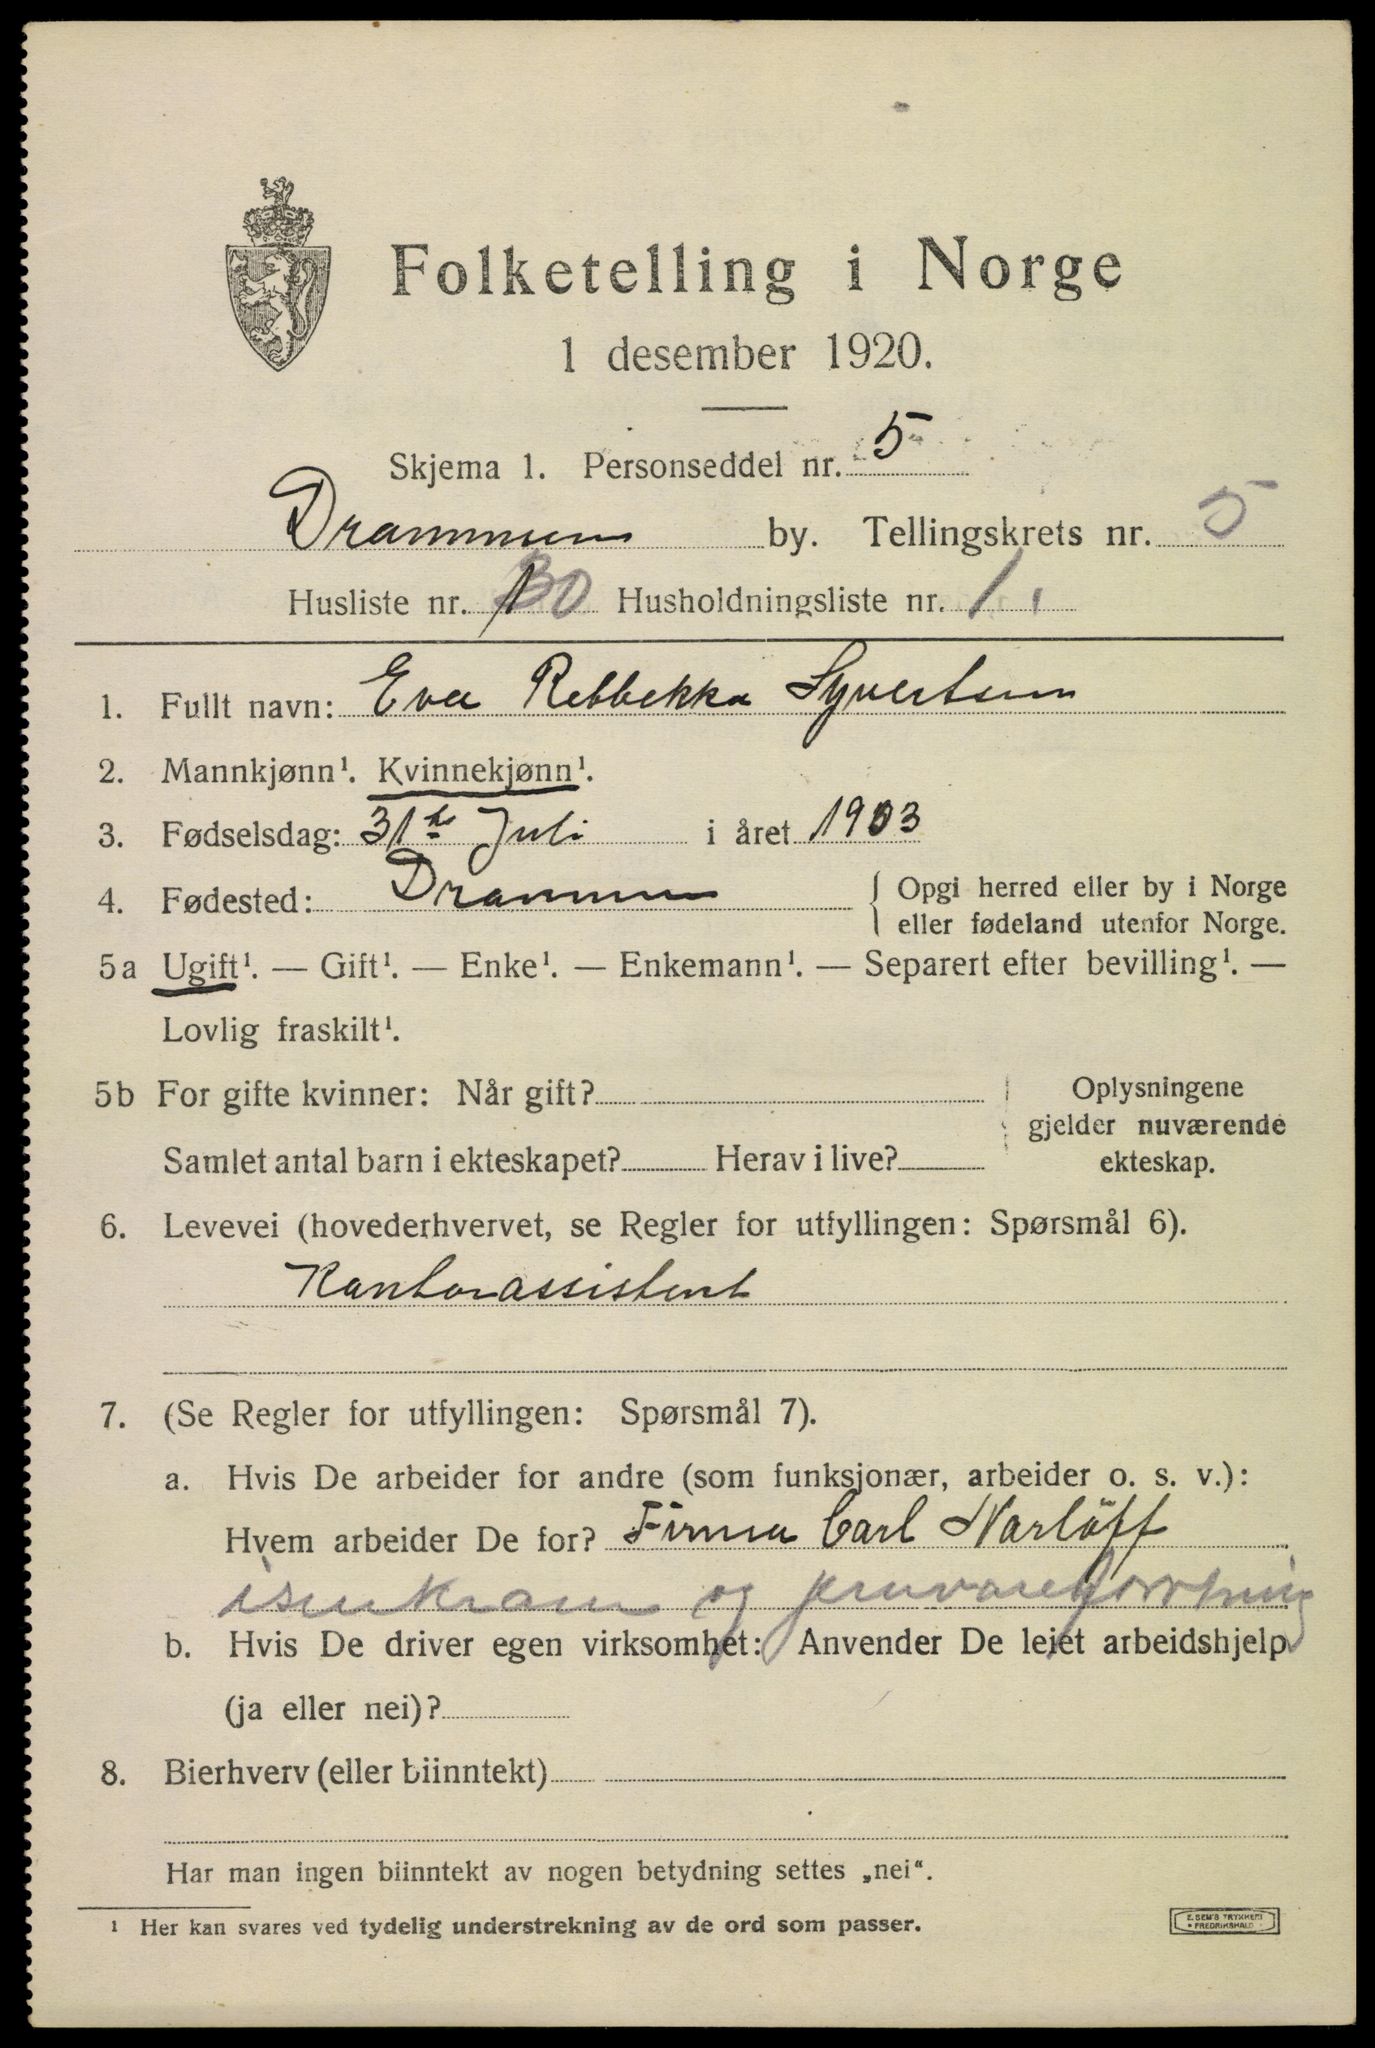 Folketelling i Norge
1 desember 1920.
Skjema 1. Personseddel nr. 5
Drammen by. Tellingskrets nr. 5
Husliste nr. 30 Husholdningsliste nr. 1.
1. Fullt navn: Eva Rebbekka Syvertsen
2. Mannkjønn¹. Kvinnekjønn¹.
3. Fødselsdag: 31te Juli i året 1903
4. Fødested: Drammen { Opgi herred eller by i Norge
eller fødeland utenfor Norge.
5a Ugift¹. — Gift¹. — Enke¹. — Enkemann¹. — Separert efter bevilling¹. —
Lovlig fraskilt¹.
5b For gifte kvinner: Når gift? Oplysningene
gjelder nuværende
Samlet antal barn i ekteskapet? Herav i live? ekteskap.
6. Levevei (hovederhvervet, se Regler for utfyllingen: Spørsmål 6).
Kontorassistent
7. (Se Regler for utfyllingen: Spørsmål 7).
a. Hvis De arbeider for andre (som funksjonær, arbeider o. s. v.):
Hvem arbeider De for? Firma Carl Narløff
isenkram og
b. Hvis De driver egen virksomhet: Anvender De leiet arbeidshjelp
(ja eller nei)?
8. Bierhverv (eller biinntekt)
Har man ingen biinntekt av nogen betydning settes „nei“.
¹ Her kan svares ved tydelig understrekning av de ord som passer.
E. SEM'S TRYKKERI
• FREDRIKSHALD •